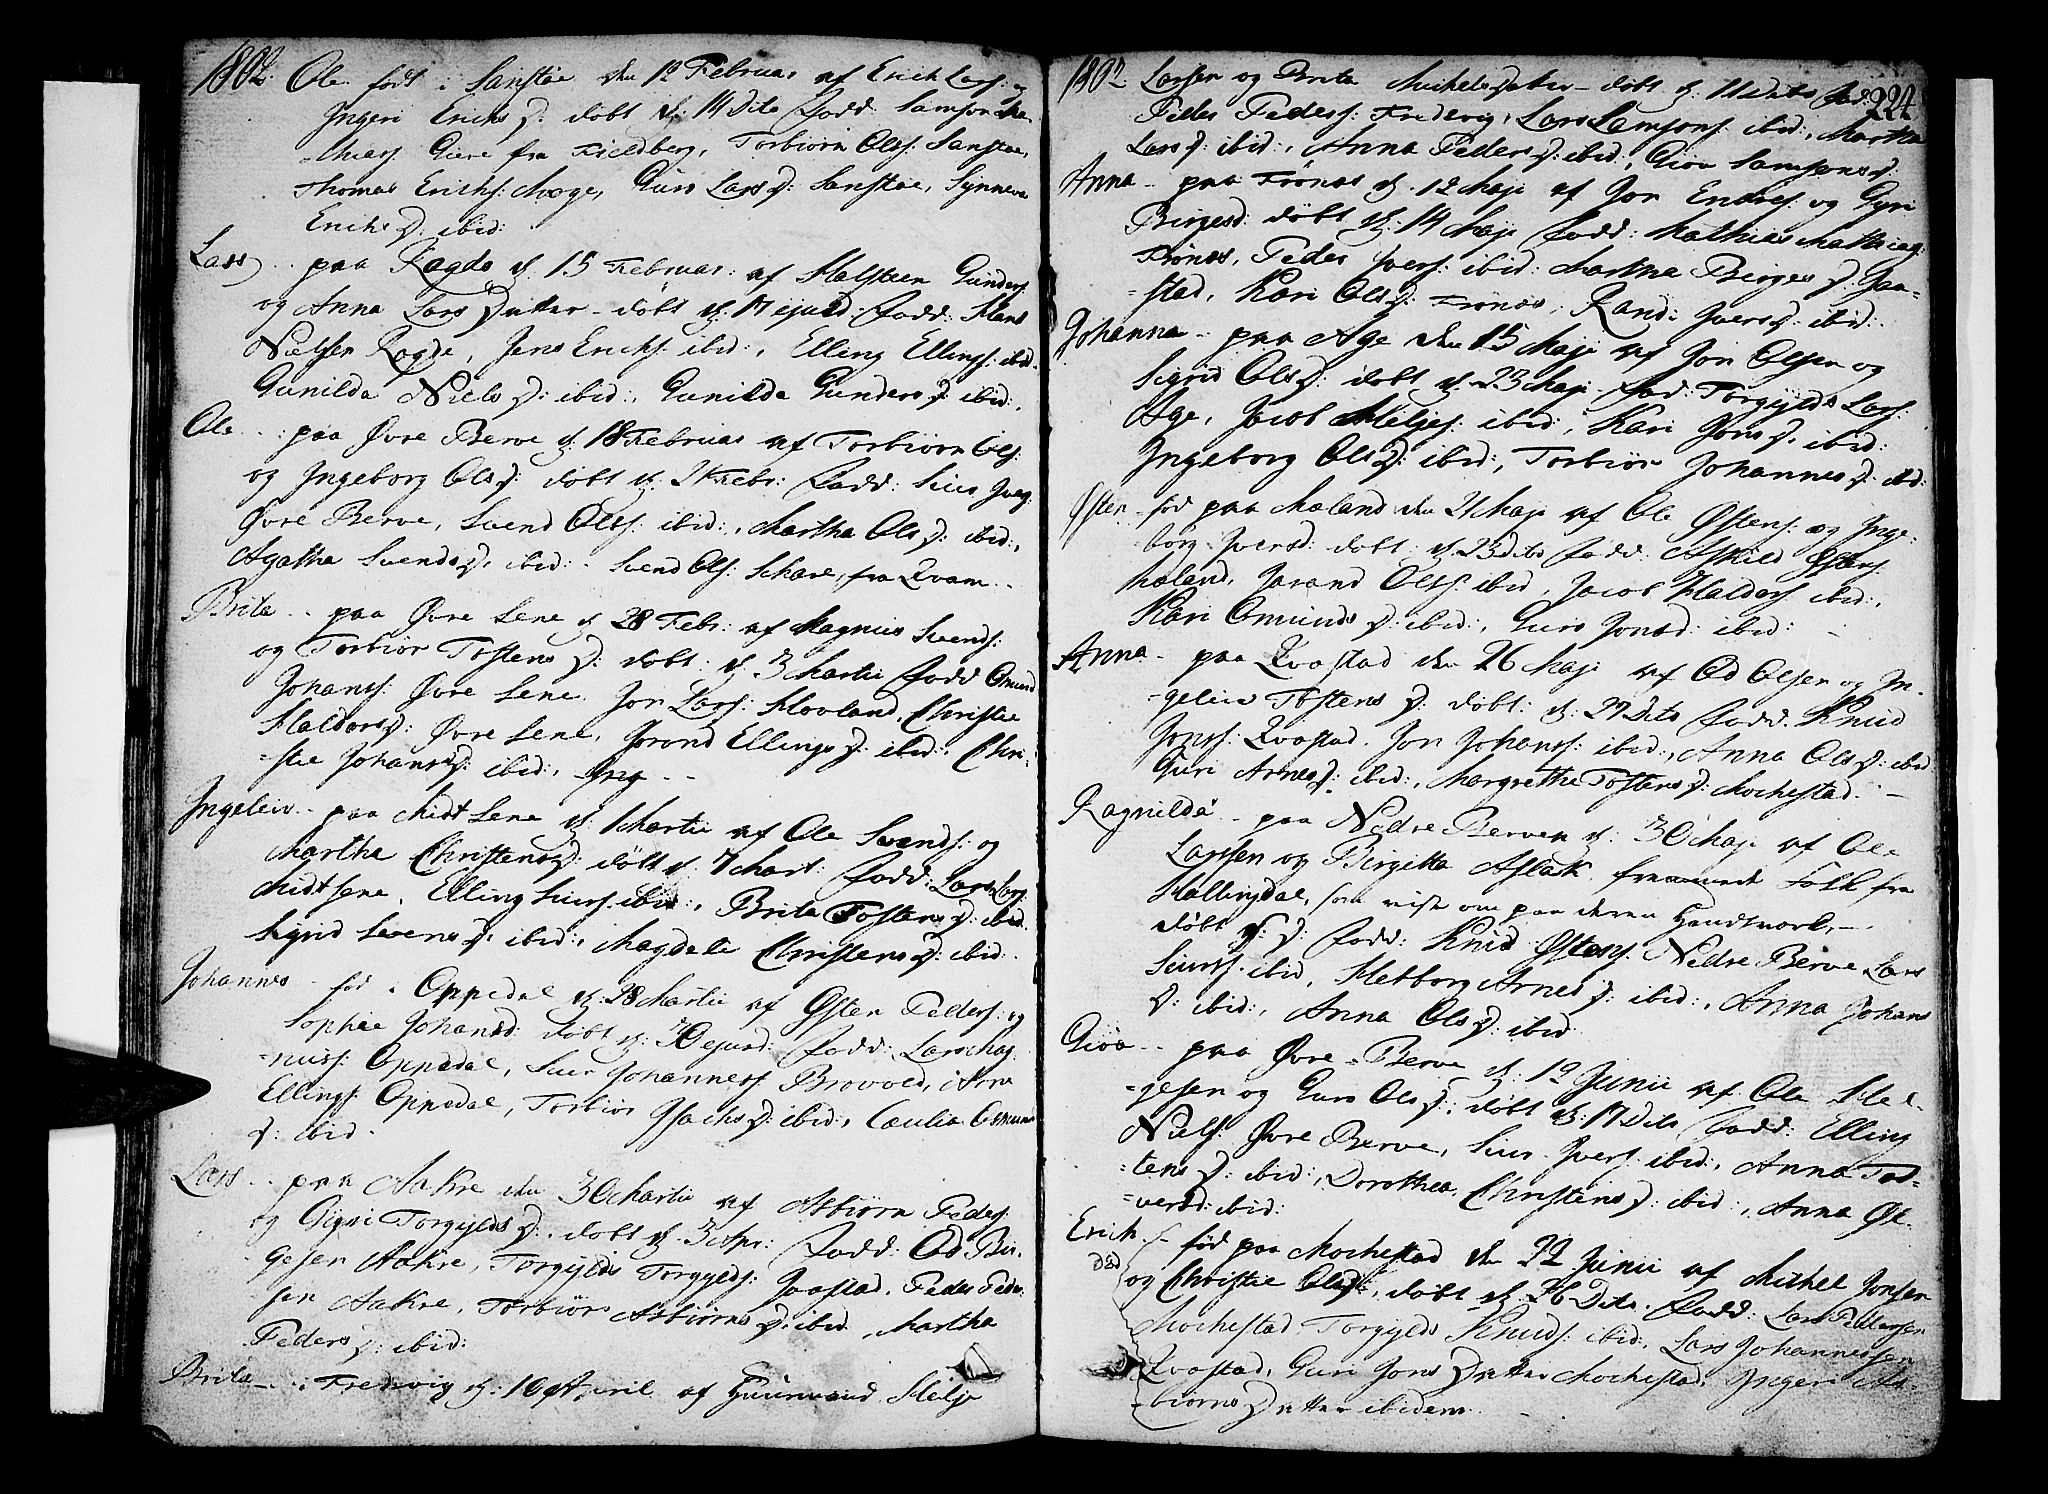 1802. Ole født i Sanstøe den 12 Februar af Erich Lars: og
Ingeri Erichs D: døbt d: 14 Dito fadd: Samson Ma-
thias: fra Kieldberg, Torbiørn Ols: Sanstøe,
Thomas Erichs: Mæge, Guro Lars D: Sanstøe, Synneva
Erichs D: ibid:
Lars .. paa Ragde d. 15 Februar: af Halsteen Gunders:
og Anna Lars Datter - døbt d: 17 ejusd: fadd: Hans
Nielsen Ragde, Jens Erichs: ibid:, Elling Ellings: ibid.
Gunilda Niels D: ibid:, Gunilda Gunders D: ibid:
Ole .. paa Øvre Berve d: 18 Februar af Torbiørn Ols:
og Ingeborg Ols D: døbt d: 21 Febr: fadd: Siur Iver:
Øvre Berve, Svend Ols: ibid:, Martha Ols D: ibid:,
Agatha Svends D: ibid: - Svend Ols: Schare, fra Qvam --
Brita .. paa Øvre Sene d 28 Febr: af Magnus Svends:
og Torbiør Tostens D: døbt: d: 3 Martii fadd Omund
Johans: Øvre Sene. Jon Lars: Hovland, Christie
Haldors D: Øvre Sene, Jorond Ellings D: ibid:, Chri-
stie Johans D: ibid:,
Ingeleiv .. paa Midt Sene d: 1 Martii af Ole Svends: og
Martha Christens D: døbt d. 7 Mart: fadd: Lars Lars:
Midtsene, Elling Siurs: ibid:, Brita Tostens D: ibid.
Sigrid Svens D: ibid:, Magdele Christens D: ibid:
Johannes - fød i Oppedal d: 28 Martii af Østen Peders: og
Sophie Johansd: døbt d: 30 ejusd: fadd: Lars Mag-
nus: Oppedal, Siur Johannes: Brovold, Arne
Ellings: Oppedal, Torbiør Isachs D: ibid:, Cæcilia Omunds
D: ibid.
Lars .. paa Aakre den 30 Martii af Asbiørn Peders:
og Gyri Torgylds D: døbt d. 3 Apr: fadd: Od Bir-
gesen Aakre, Torgyld Torgylds: Jaastad, Peder Peder-
sen Aakre, Torbiør Asbiørns D: ibid, Martha
Peders D: ibid:
Brita - .. i Fredvig d: 10 April af Guunvaud Helje
1802. Larsen og Brita Michels datter - døbt d: 11 Dito fad: 224
Peder Peders: Fredvig, Lars Samsons: ibid:, Martha
Lars D: ibid:, Anna Peders D: ibid:, Giøa Samsons D:
Anna - paa Frønæs d. 12 Maji af Jon Endres: og Gyri
Birgesd: døbt d: 14 Maji fadd: Mathias Mathias:
Frønæs, Peder Ivers: ibid: Martha Birges D: Jaa-
stad, Kari Ols D: Frønæs, Randi Ivers D: ibid:
Johanna - paa Age den 15 Maji af Jon Olsen og
Sigrid Ols D: døbt d. 23 Maji - fad: Torgyld Lars:
Age, Jacob Heljes: ibid:, Kari Jons D: ibid:
Ingeborg Ols D: ibid:, Torbiør Johannes D: ibid:
Østen - fød paa Mæland den 21 Maji af Ole Østens: og Inge-
borg Iversd: døbt: d. 23 Dito fadd: Askild Østens:
Mæland, Jarand Ols: ibid, Jacob Haldors: ibid:,
Kari Omunds D: ibid:, Guro Jonsd: ibid: -
Anna - paa Qvastad den 26 Maji af Od Olsen og In-
geleiv Tostens D: døbt: d: 27 Dito fadd: Knud
Jons: Qvastad. Jon Johans: ibid:, Anna Ols D: ibid
Guri Arnes D: ibid:, Margrethe Tostens D: Mochestad. -
Ragnilda .. paa Nedre Berven d: 30 Maji af Ole
Larsen og Birgitta Aslak. fremmede Folk fra
Hallingdal, som reise om paa deres Handtverk, -
døbt d: D: fadd: Knud Østens: Nedre Berve Lars
Siurs: ibid, Herborg Arnes D: ibid:, Anna Johans
D: ibid:, Anna Ols D: ibid
Giøa .. paa Øvre-Berve d: 12 Junii af Ole Hel-
gesen og Guro Ols D: døbt d: 17 Dito fadd: Elling
Niels: Øvre Berve, Siur Ivers: ibid:, Anna Tos-
tens D: ibid:, Dorothea Christens D: ibid:, Anna Øl-
versd: ibid:
Erich - fød paa Mochestad den 22 Junii af Michel Jonsen
død og Christie Olsd:, døbt d: 26 Dito. fadd: Lars Pedersen
Mochestad, Torgyld Knuds: ibid:, Lars Johannessen
Qvastad, Guri Jons Datter Mochestad, Ingeri As-
biørns Datter ibidem -